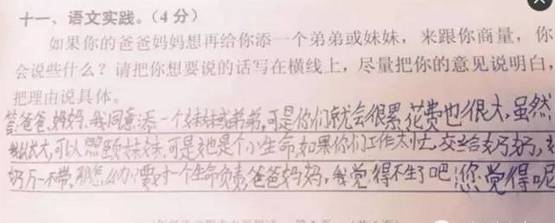 十一、语文实践。(4分)
如果你的爸爸妈妈想再给你添一个弟弟或妹妹，来跟你商量，你
会说些什么？请把你想要说的话写在横线上，尽量把你的意见说明白，
把理由说具体。
答:爸爸,妈妈,我同意添一个妹妹或弟弟,可是你们就会很累,花费也很大,虽然
我长大,可以照顾妹妹,可是她是个小生命,如果你们工作太忙,交给奶奶,
奶万一不带,那怎么办?要对一个生命负责,爸爸妈妈,我觉得不生了吧!您觉得呢